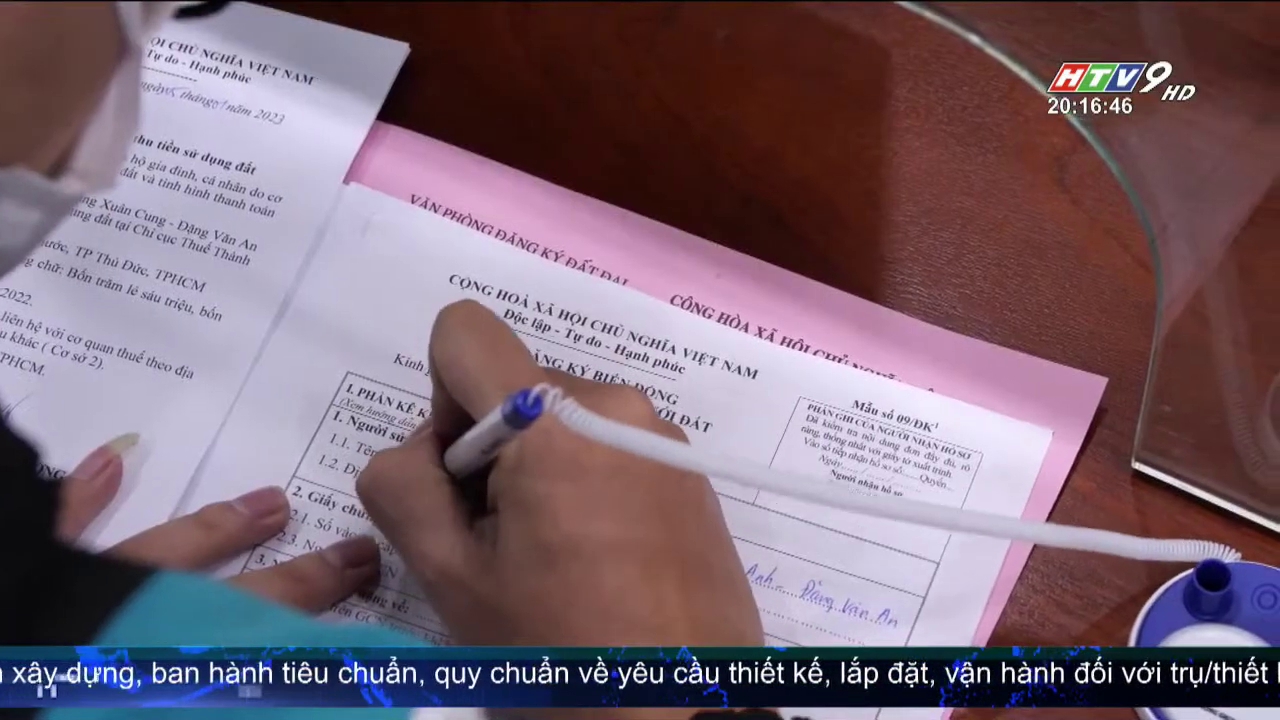 HTV9 HD
20:16:46
ỘI CHỦ NGHĨA VIỆT NAM
Tự do - Hạnh phúc
năm 2023
thu tiền sử dụng đất
hộ gia đình, cá nhân do cơ
đất và tình hình thanh toán
Xuân Cung - Đặng Văn An
đất tại Chi cục Thuế Thành
TP Thủ Đức, TPHCM
chữ: Bốn trăm lẻ sáu triệu, bốn
2022.
liên hệ với cơ quan thuế theo địa
khác ( Cơ sở 2).
TPHCM.
VĂN PHÒNG ĐĂNG KÝ ĐẤT ĐAI
CỘNG HÒA XÃ HỘI CHỦ
CỘNG HOÀ XÃ HỘI CHỦ NGHĨA VIỆT NAM
Độc lập - Tự do - Hạnh phúc
ĐĂNG KÝ BIẾN ĐỘNG
ĐẤT
Kính
Mẫu số 09/ĐK
PHẦN GHI CỦA NGƯỜI NHẬN HỒ SƠ
Đã kiểm tra nội dung đơn đầy đủ, rõ
ràng, thống nhất với giấy tờ xuất trình
Vào sổ tiếp nhận hồ sơ số:......Quyển....
Ngày
Người nhận hồ sơ
I. PHẦN KÊ K
(Xem hướng dẫn
1. Người sử
1.1. Tên
1.2. Đị
2. Giấy chứ
2.1. Số vào
2.3. Ng
3.
Anh - Đặng Văn An
xây dựng, ban hành tiêu chuẩn, quy chuẩn về yêu cầu thiết kế, lắp đặt, vận hành đối với trụ/thiết